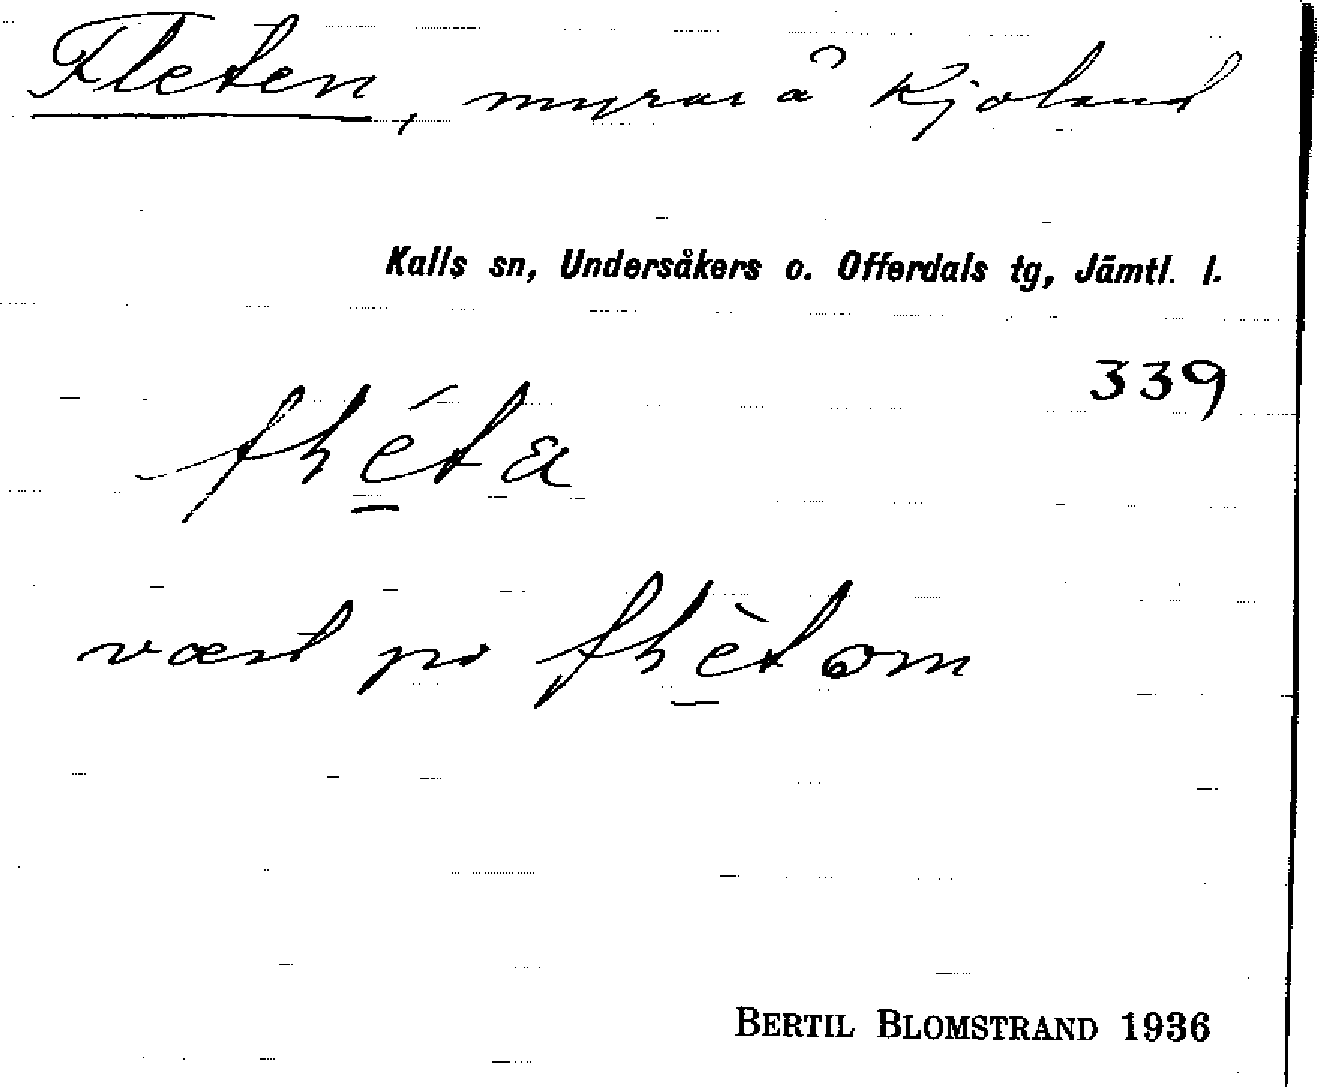 Fleten, myrar å Kjoland
Kalls sn, Undersåkers o. Offerdals tg, Jämtl. l.
339
væst på
BERTIL BLOMSTRAND 1936